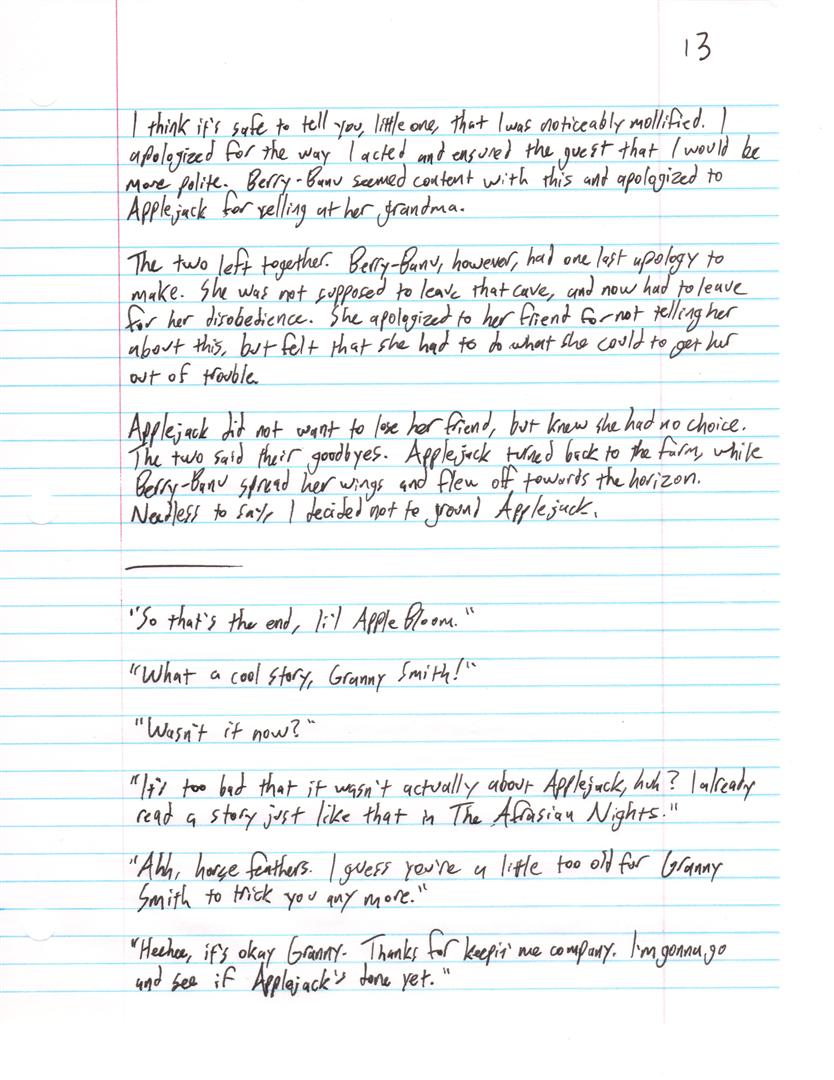 13
I think it's safe to tell you, little one, that I was noticeably mollified. I
apologized for the way I acted and ensured the guest that I would be
more polite. Berry-Banu seemed content with this and apologized to
Applejack for yelling at her grandma.
The two left together. Berry-Banu, however, had one last apology to
make. She was not supposed to leave that cave, and now had to leave
for her disobedience. She apologized to her friend for not telling her
about this, but felt that she had to do what she could to get her
out of trouble.
Applejack did not want to lose her friend, but knew she had no choice.
The two said their goodbyes. Applejack turned back to the farm, while
Berry-Banu spread her wings and flew off towards the horizon.
Needless to say, I decided not to ground Applejack.
"So that's the end, li'l Apple Bloom."
"What a cool story, Granny Smith!"
"Wasn't it now?"
"It's too bad that it wasn't actually about Applejack, huh? I already
read a story just like that in The Afrasian Nights."
"Ahh, horse feathers. I guess you're a little too old for Granny
Smith to trick you any more."
"Heehee, it's okay Granny. Thanks for keepin' me company. I'm gonna go
and see if Applejack's done yet."